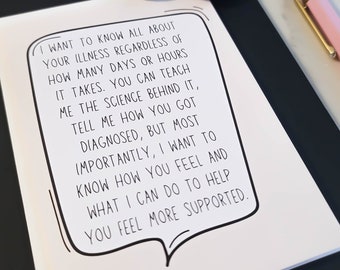 I WANT TO KNOW ALL ABOUT
YOUR ILLNESS REGARDLESS OF
HOW MANY DAYS OR HOURS
IT TAKES. YOU CAN TEACH
ME THE SCIENCE BEHIND IT,
TELL ME HOW YOU GOT
DIAGNOSED, BUT MOST
IMPORTANTLY, I WANT TO
KNOW HOW YOU FEEL AND
WHAT I CAN DO TO HELP
YOU FEEL MORE SUPPORTED.